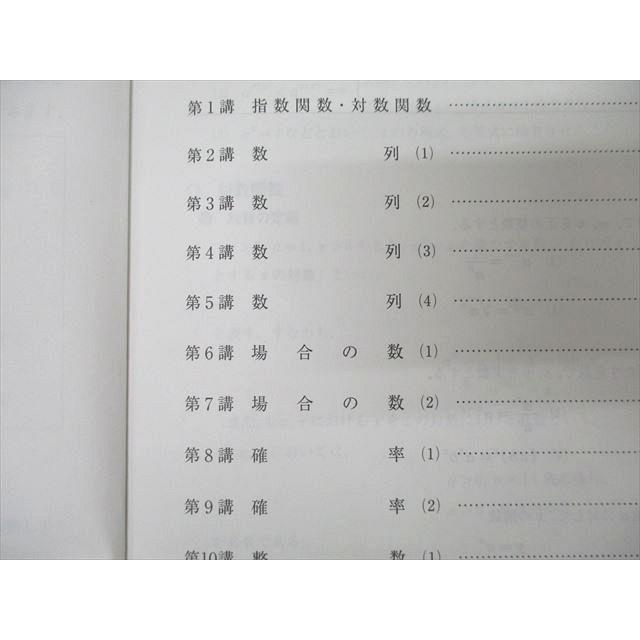 第1講 指数関数・対数関数 ……………………
第2講 数列 (1) ……………………
第3講 数列 (2) ……………………
第4講 数列 (3) ……………………
第5講 数列 (4) ……………………
第6講 場合の数 (1) ……………………
第7講 場合の数 (2) ……………………
第8講 確率 (1) ……………………
第9講 確率 (2) ……………………
第10講 整数 (1) ……………………